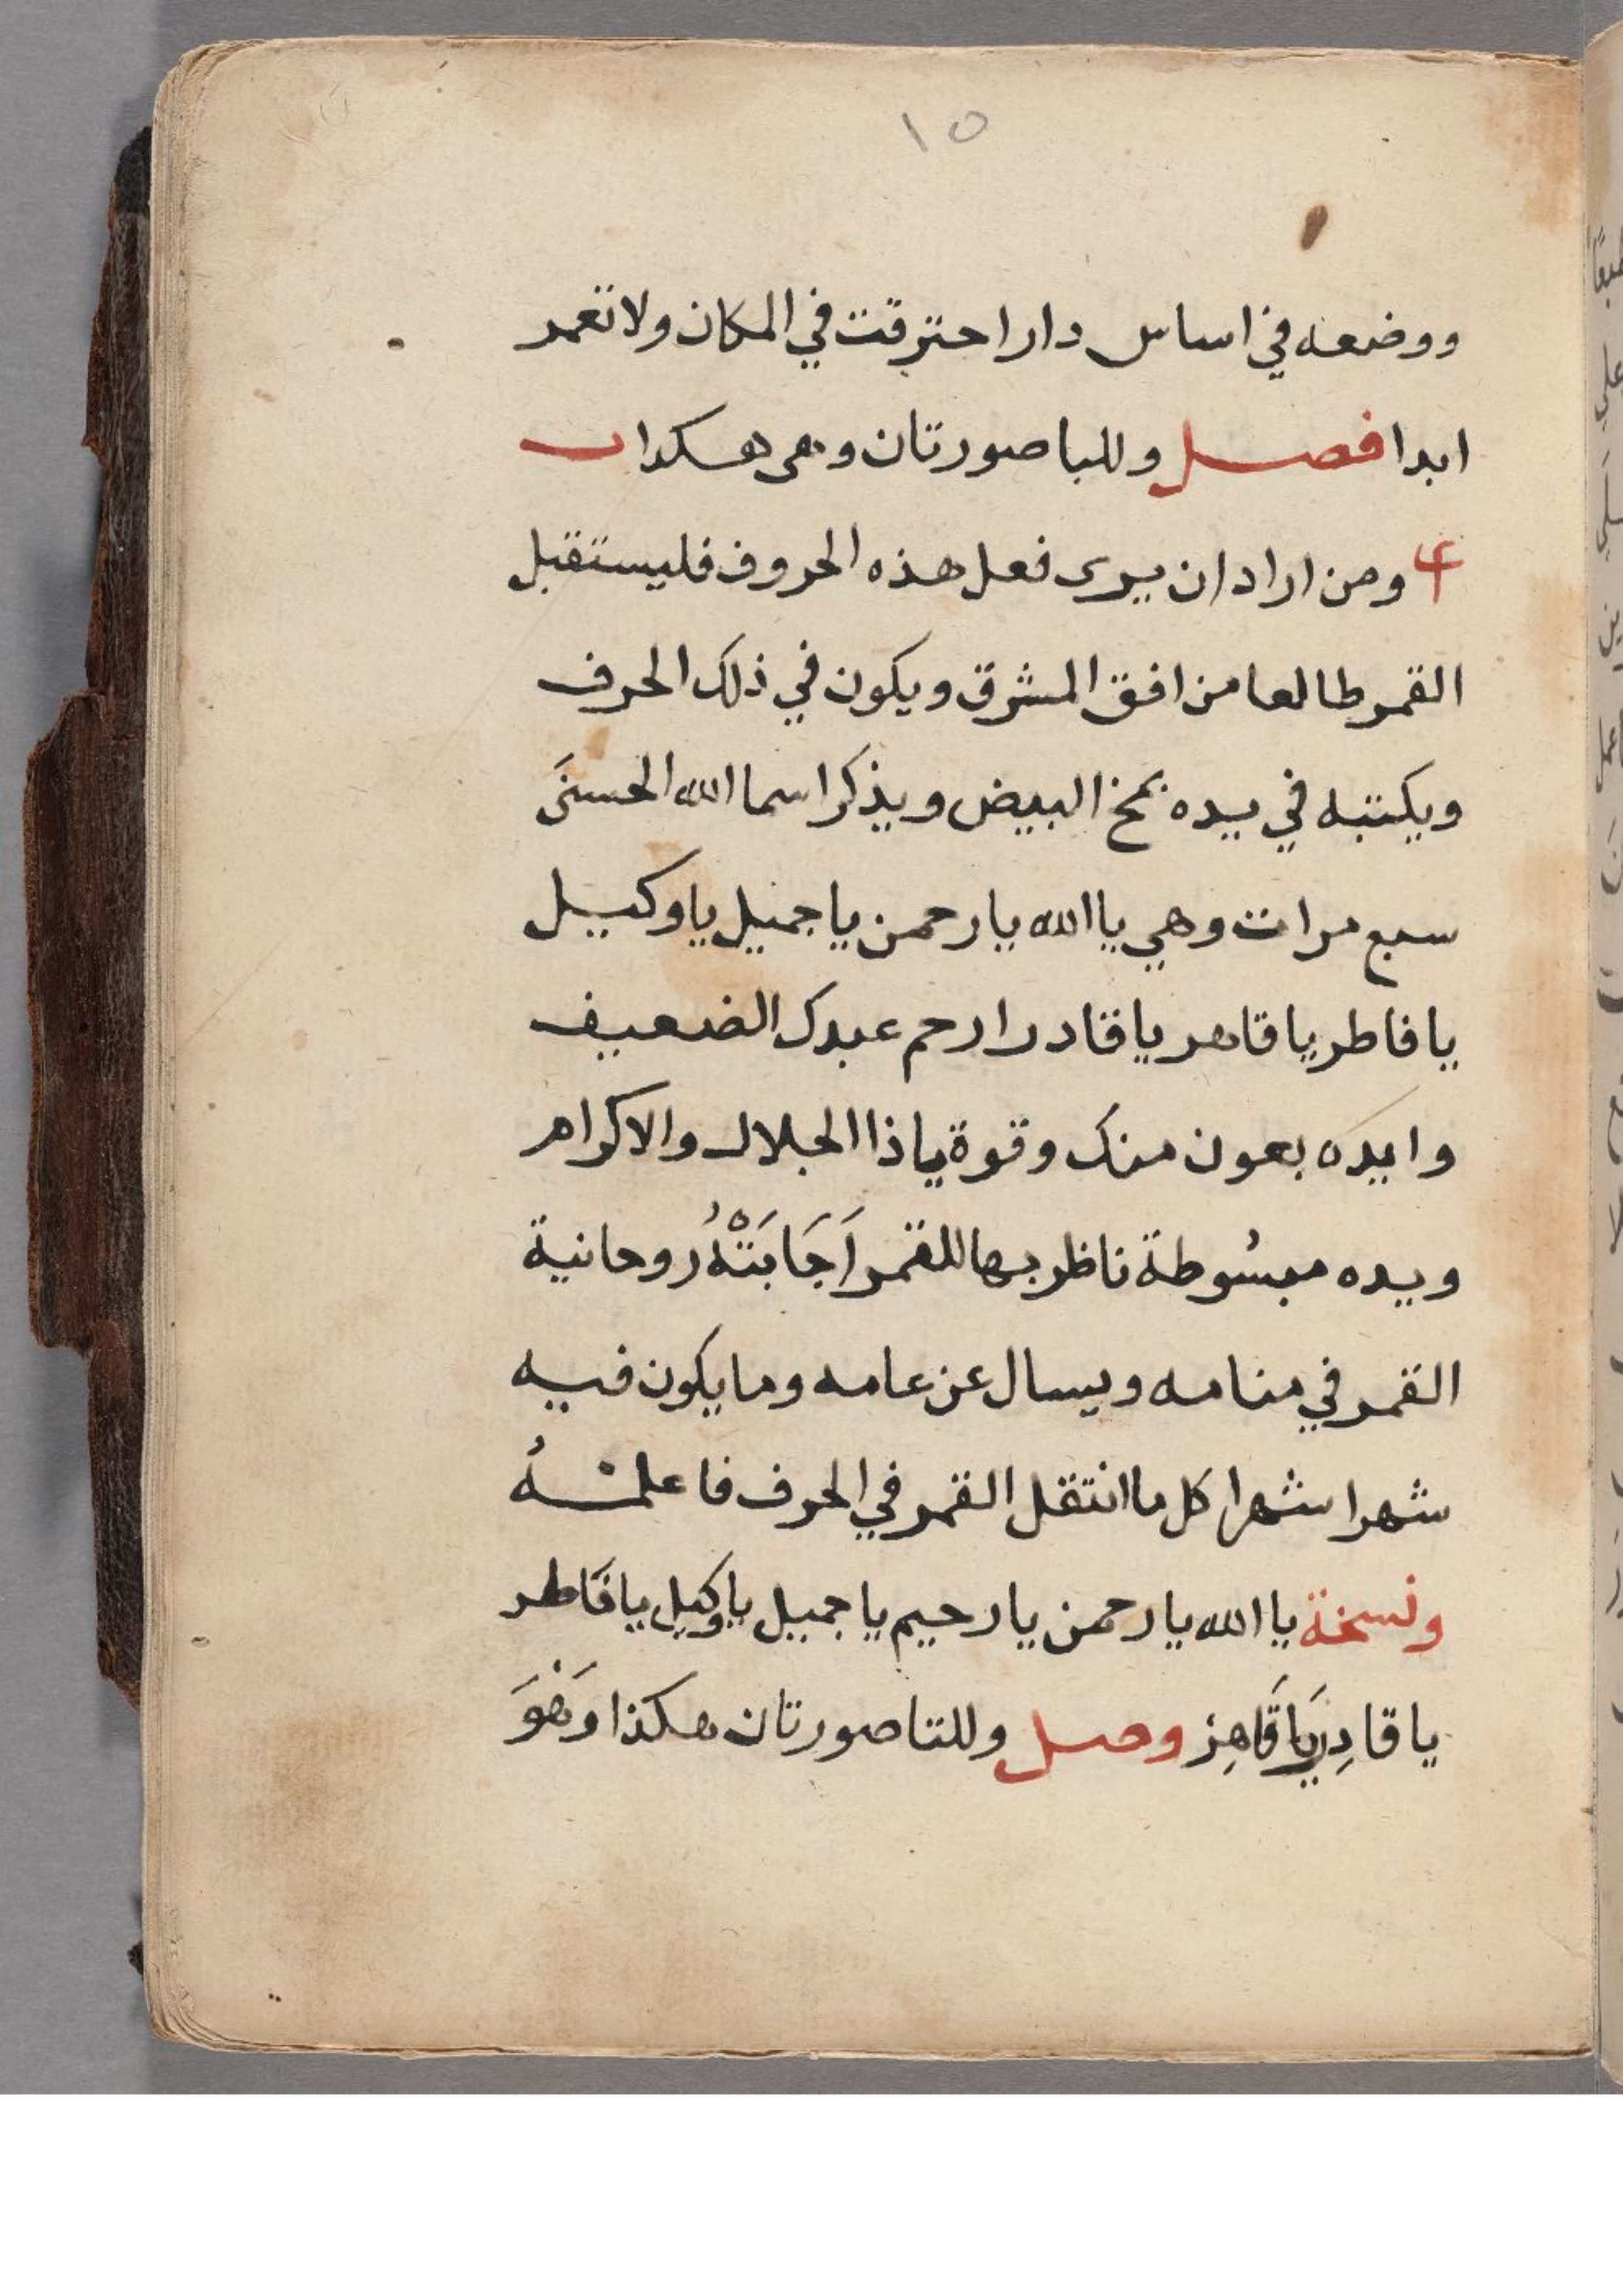 ١٥
ووضعه في اساس دار احترقت في المكان ولا تعمر
ابدا فصل وللبا صورتان وهى هكدا ٮ
ومن اراد ان يرى فعل هذه الحروف فليستقبل
القمر طالعا من افق المشرق ويكون في ذلك الحرف
ويكتبه في يده بمخ البيض ويذكر اسما الله الحسنَى
سبع مرات وهي يا الله يا رحمن يا جميل يا وكيل
يا فاطر يا قاهر يا قادر ارحم عبدك الضعيف
وايده بعون منك وقوة يا ذا الجلال والاكرام
ويده مبسُوطة ناظر بها للقمر اَجَابَتْهُ روحانية
القمر في منامه ويسال عن عامه وما يكون فيه
شهرا شهرا كل ما انتقل القمر في الحرف فاعلمهُ
ونسخة يا الله يا رحمن يا رحيم يا جميل يا وكيل يا فَاطر
يا قادِر يَا قَاهِر وصل وللتا صورتان هكذا وَهْوَ